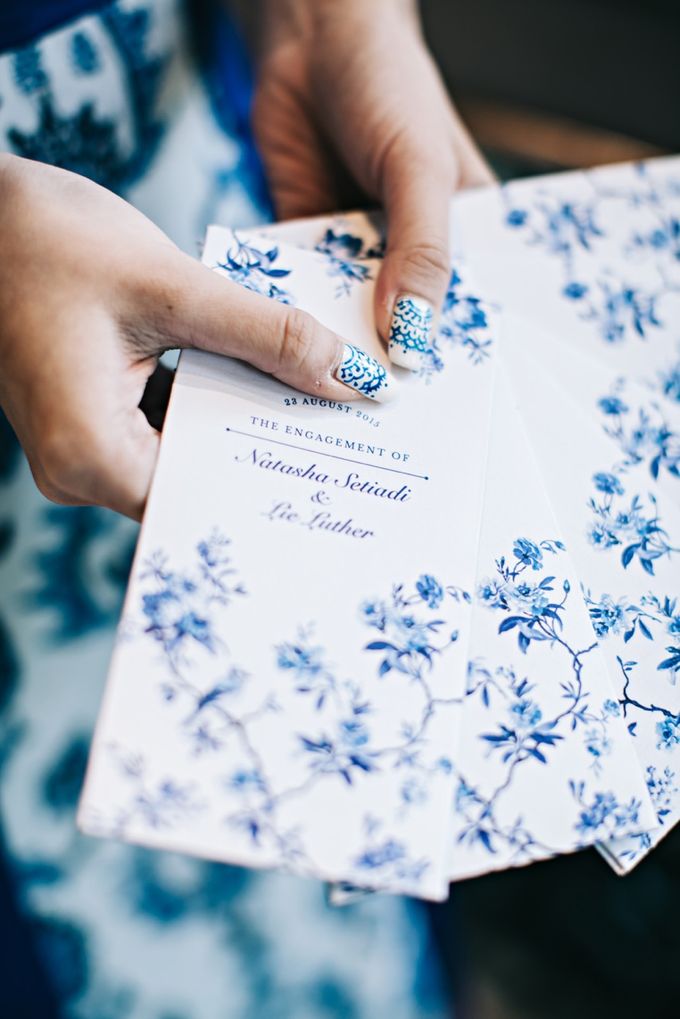 23 AUGUST 2015
THE ENGAGEMENT OF
Natasha Setiadi
&
Lie Luther